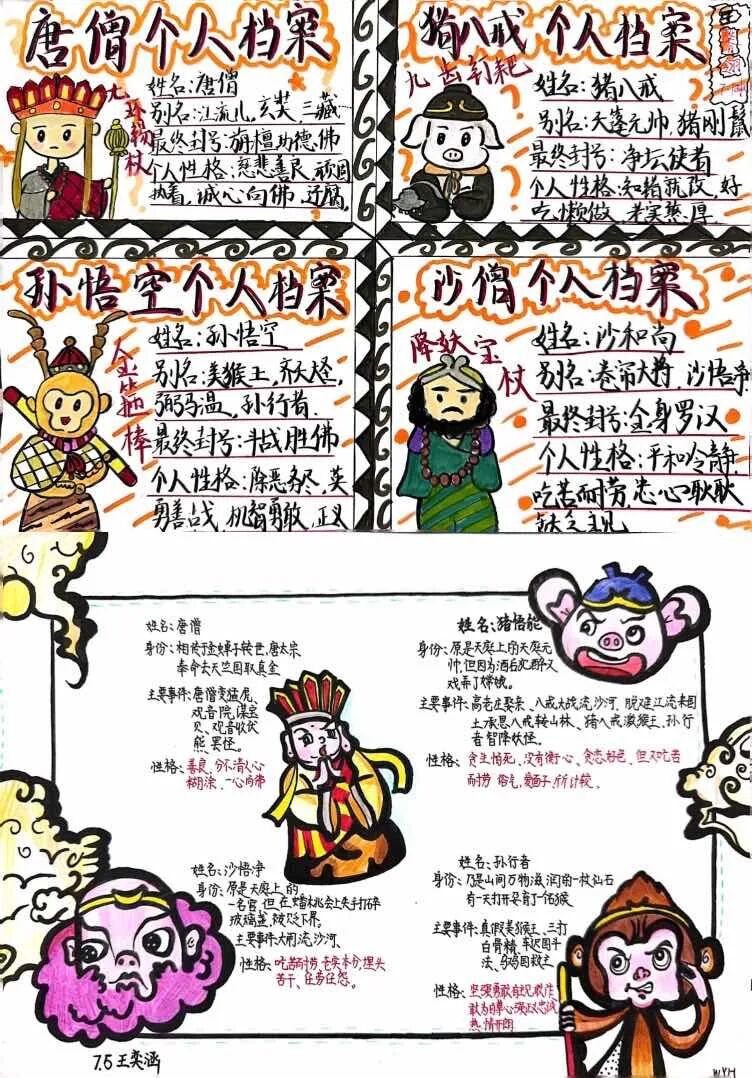 唐僧个人档案
九环锡杖
姓名:唐僧
别名:江流儿,玄奘,三藏
最终封号:旃檀功德佛
个人性格:慈悲善良,顽固
执着,诚心向佛,迂腐,
猪八戒个人档案
九齿钉耙
姓名:猪八戒
别名:天蓬元帅,猪刚鬣
最终封号:净坛使者
个人性格:知错就改,好
吃懒做,老实憨厚
孙悟空个人档案
金箍棒
姓名:孙悟空
别名:美猴王,齐天大圣,
弼马温,孙行者.
最终封号:斗战胜佛
个人性格:除恶务尽,英
勇善战,机智勇敢,正义
沙僧个人档案
降妖宝杖
姓名:沙和尚
别名:卷帘大将,沙悟净
最终封号:金身罗汉
个人性格:平和冷静,
吃苦而耐劳,忠心耿耿
缺乏主见
姓名:唐僧
身份:相传于金蝉子转世,唐太宗
奉命去天竺国取真经
主要事件:唐僧变猛虎,
观音院,谋宝
贝、观音收伏
熊罴怪。
性格:善良,分不清人心
糊涂、一心向佛
姓名:猪悟能
身份:原是天庭上的天庭元
帅,但因为酒后
戏弄了嫦娥。
主要事件:高老庄娶亲、八戒大战流沙河、脱难江流来国
土承恩八戒转山林、猪八戒激猴王、孙行
者智降妖怪。
性格:贪生怕死,没有衡心、贪恋好色,但不吃苦
而耐劳 俗气,爱面子,斤斤计较、
姓名:沙悟净
身份:原是天庭上的
一名官,但在蟠桃会上失手打碎
玻璃盏,被贬下界。
主要事件:大闹流沙河、
性格:吃苦耐劳、老实本分,埋头
苦干、任劳任怨。
姓名:孙行者
身份:乃是山间万物滋润的一枚仙石
有一天打开孕育了一石猴
主要事件:真假美猴王、三打
白骨精、车迟国斗
法、乌鸡国救主
性格:坚强勇敢敢
热情开朗
7.5王奕涵
WYH